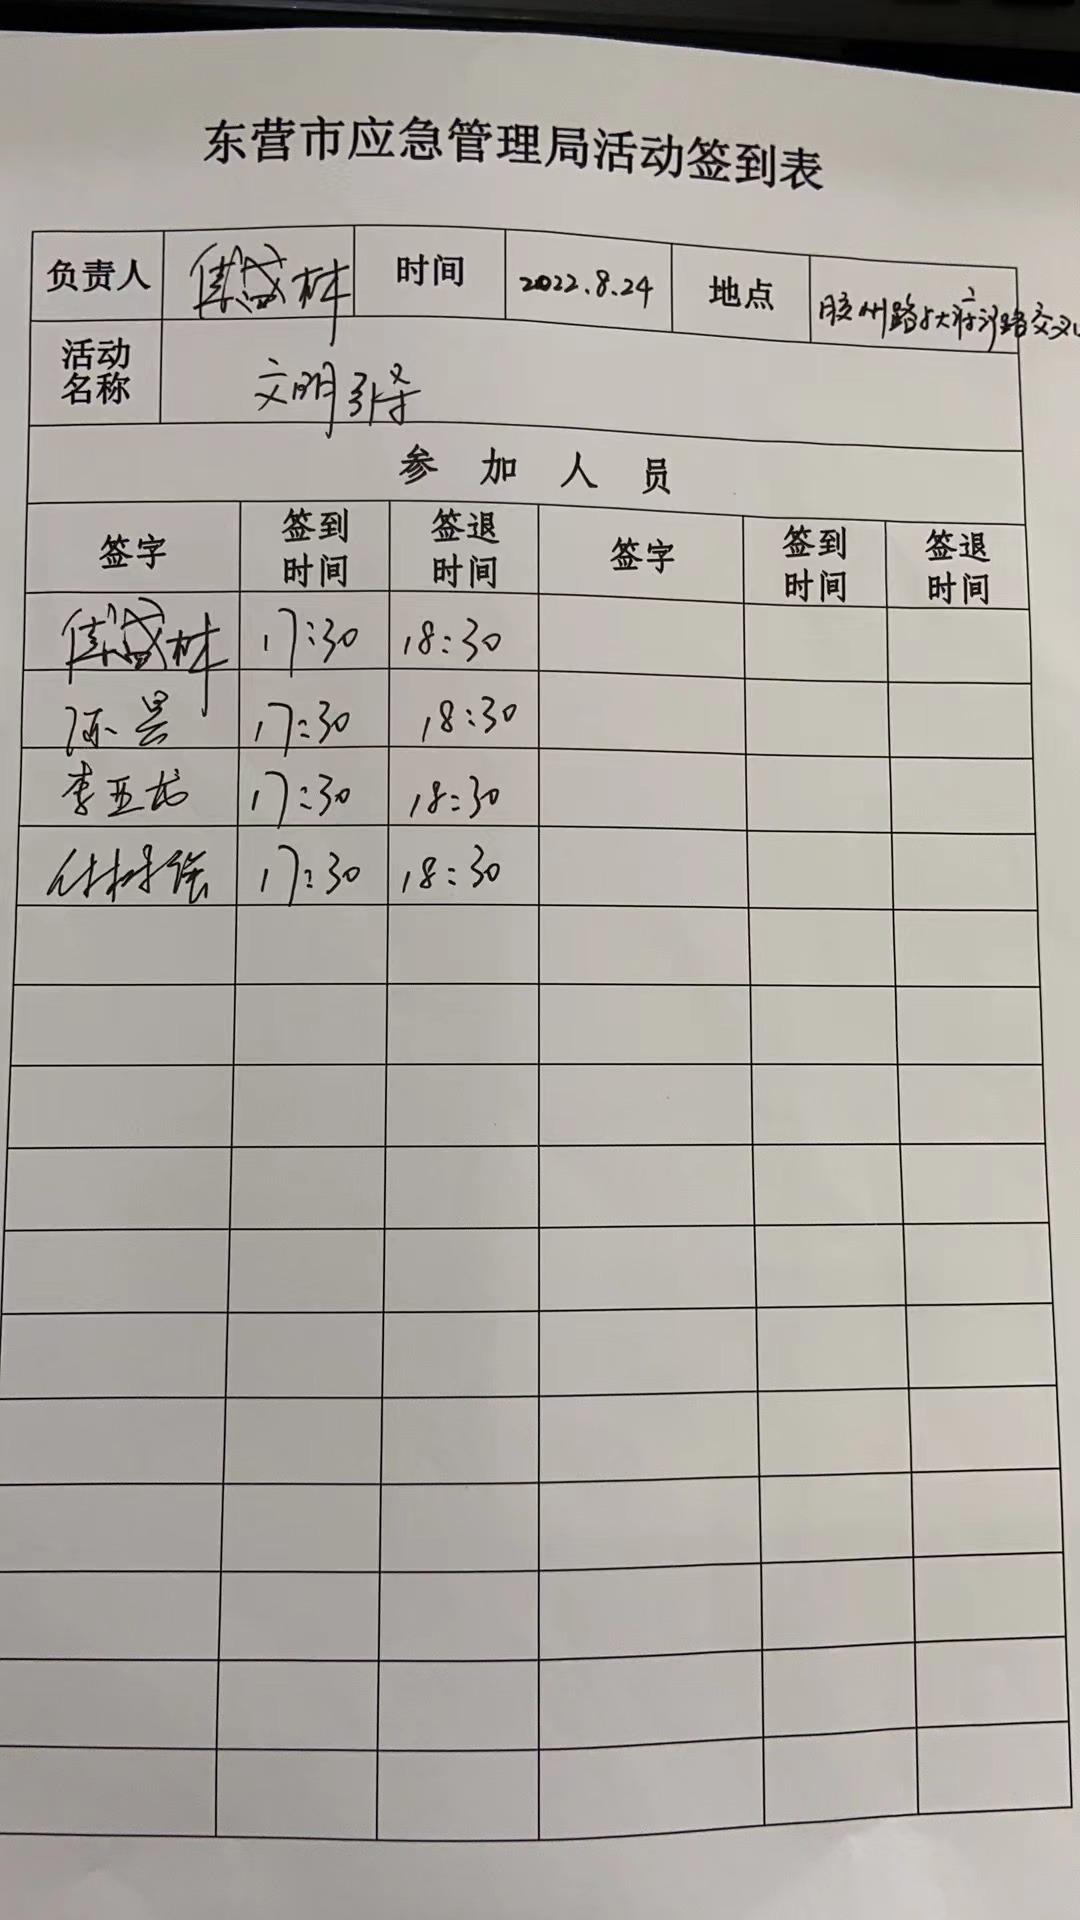 东营市应急管理局活动签到表
负责人 时间 2022.8.24 地点 胶州路 府前路交叉口
活动名称 文明引导
参加人员
签字 签到时间 签退时间 签字 签到时间 签退时间
17:30 18:30
17:30 18:30
李亚龙 17:30 18:30
17:30 18:30